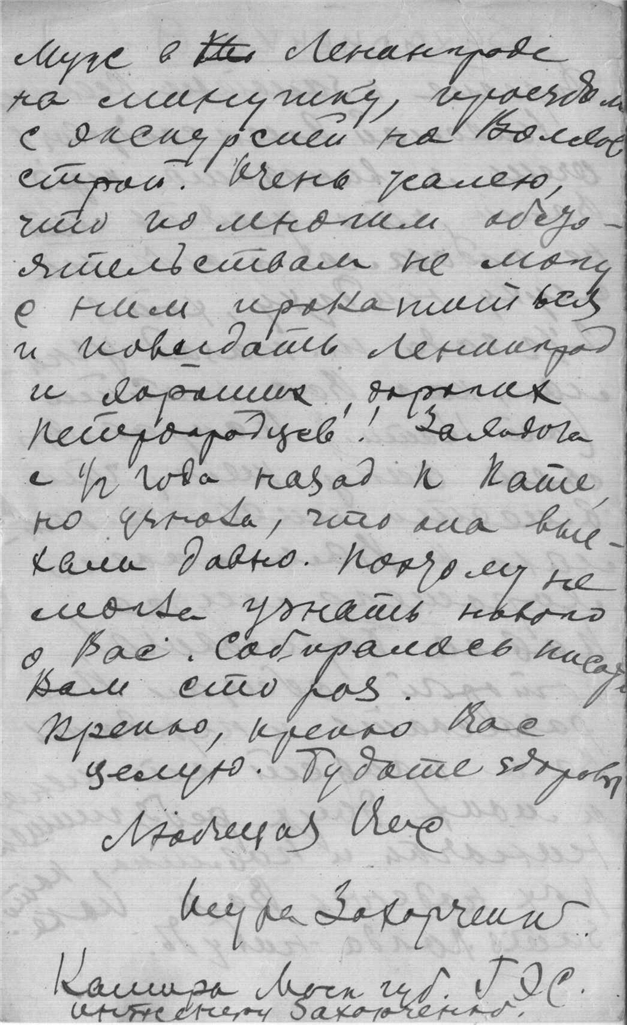 муж в Ленинграде
на минутку, проездом
с экскурсией на Волхов
строй. Очень жалею,
что по многим обсто-
ятельствам не могу
с ним прокатиться
и повидать Ленинград
и хороших, дорогих
петроградцев! Заходила
с 1/2 года назад к Кате,
но узнала, что она вые-
хала давно. Поэтому не
могла узнать нового
о Вас. Собиралась писать
Вам сто раз.
Крепко, крепко Вас
целую. Будьте здоровы
Любящая Вас
Шура Захарченко.
Кашира Моск губ. ГЭС.
инженеру Захарченко.